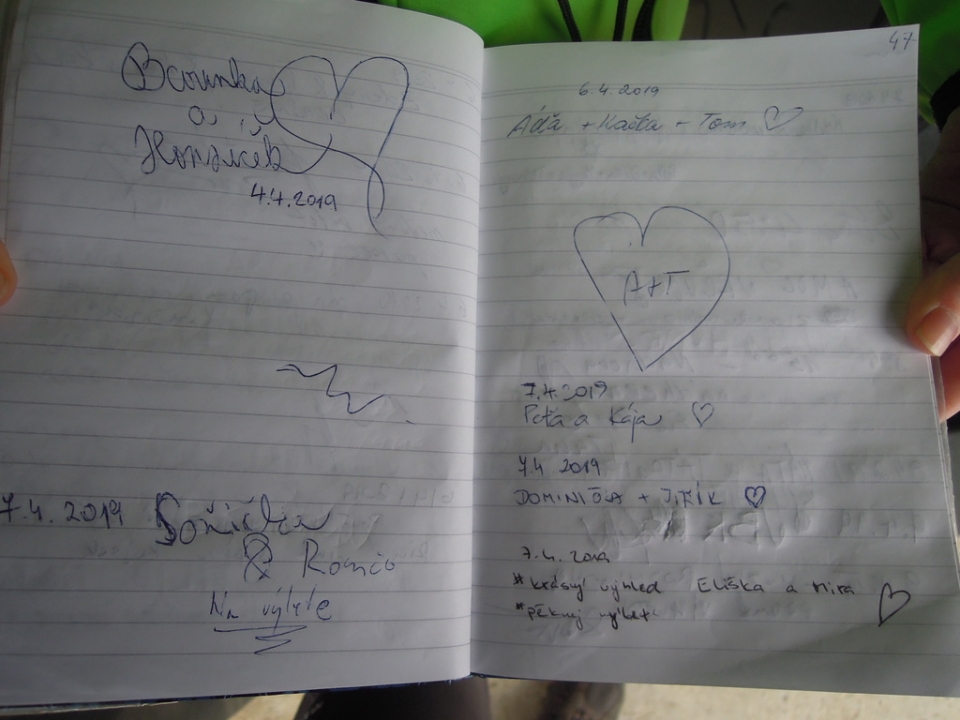 a
4.4.2019
7.4.2019 Sonička
& Romčo
Na výletě
47
6.4.2019
Áďa + Kačka + Tom
A+T
7.4.2019
Peťa a Kája
7.4 2019
DOMINIČKA + JIŘÍK
7.4.2019
*krásný výhled Eliška a Míra
*pěknej výlet